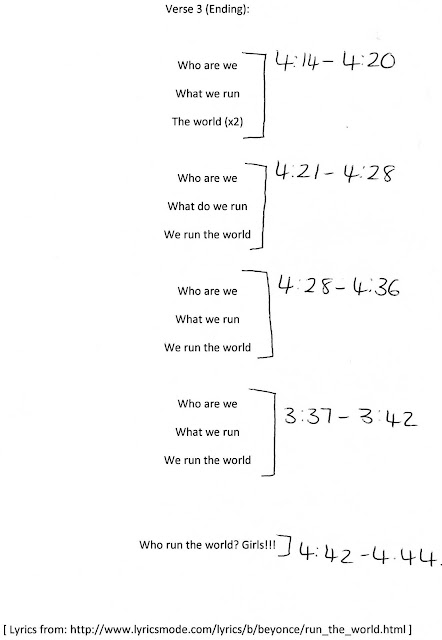 Verse 3 (Ending):
Who are we
What we run
The world (x2)
4:14 - 4:20
Who are we
What do we run
We run the world
4:21 - 4:28
Who are we
What we run
We run the world
4:28 - 4:36
Who are we
What we run
We run the world
3:37 - 3:42
Who run the world? Girls!!!
4:42 - 4.44.
[ Lyrics from: http://www.lyricsmode.com/lyrics/b/beyonce/run_the_world.html ]